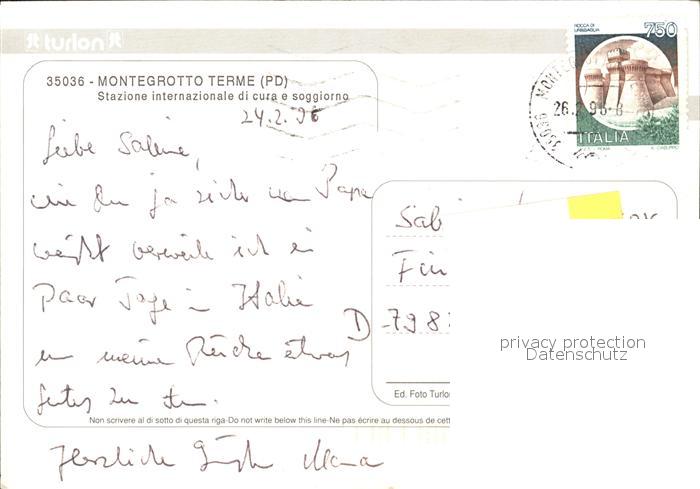 turlon
35036 - MONTEGROTTO TERME (PD)
Stazione internazionale di cura e soggiorno
24.2.96
Liebe Sabine,
wie Du ja sicher von Papa
weißt verweile ich ein
paar Tage in Italien
um meinem Rücken etwas
Gutes zu tun.
Herzliche Grüße Mama
Non scrivere al di sotto di questa riga-Do not write below this line-Ne pas écrire au dessous de cett
ROCCA DI
URBISAGLIA
750
ITALIA
26.2.96-8
35036
Sab
Fin
D-798
Ed. Foto Turlon
privacy protection
Datenschutz